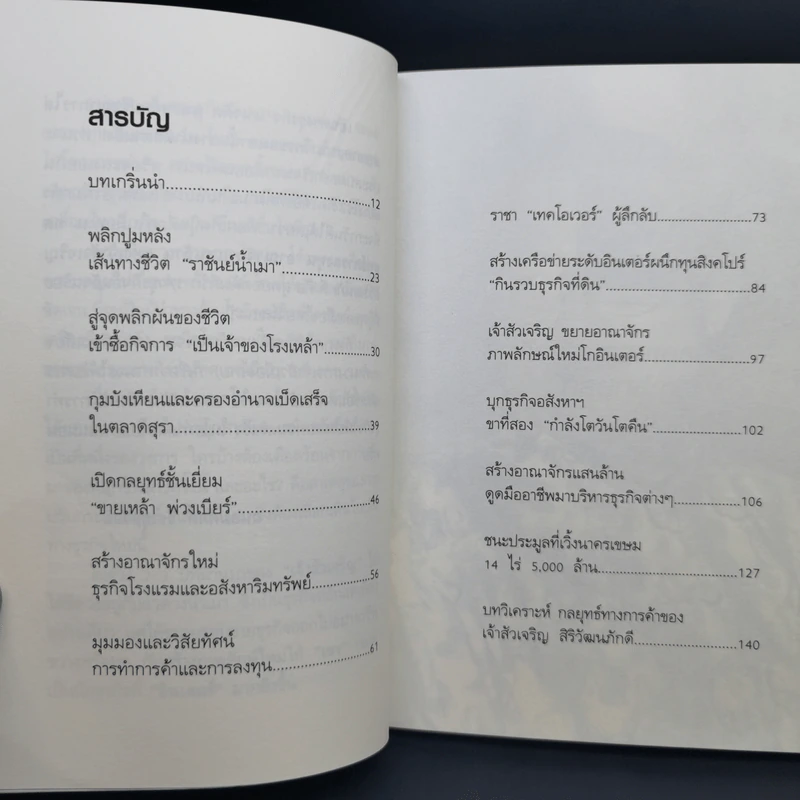 สารบัญ
บทเกริ่นนำ...............................................12
พลิกปูมหลัง
เส้นทางชีวิต "ราชันย์น้ำเมา"....................23
สู่จุดพลิกผันของชีวิต
เข้าซื้อกิจการ "เป็นเจ้าของโรงเหล้า"...........30
กุมบังเหียนและครองอำนาจเบ็ดเสร็จ
ในตลาดสุรา.............................................39
เปิดกลยุทธ์ชั้นเยี่ยม
"ขายเหล้า พ่วงเบียร์"..............................46
สร้างอาณาจักรใหม่
ธุรกิจโรงแรมและอสังหาริมทรัพย์..............56
มุมมองและวิสัยทัศน์
การทำการค้าและการลงทุน......................61
ราชา "เทคโอเวอร์" ผู้ลึกลับ......................73
สร้างเครือข่ายระดับอินเตอร์ผนึกทุนสิงคโปร์
"กินรวบธุรกิจที่ดิน"................................84
เจ้าสัวเจริญ ขยายอาณาจักร
ภาพลักษณ์ใหม่โกอินเตอร์........................97
บุกธุรกิจอสังหาฯ
ขาที่สอง "กำลังโตวันโตคืน".....................102
สร้างอาณาจักรแสนล้าน
ดูดมืออาชีพมาบริหารธุรกิจต่างๆ...............106
ชนะประมูลที่เวิ้งนาครเขษม
14 ไร่ 5,000 ล้าน................................127
บทวิเคราะห์ กลยุทธ์ทางการค้าของ
เจ้าสัวเจริญ สิริวัฒนภักดี........................140